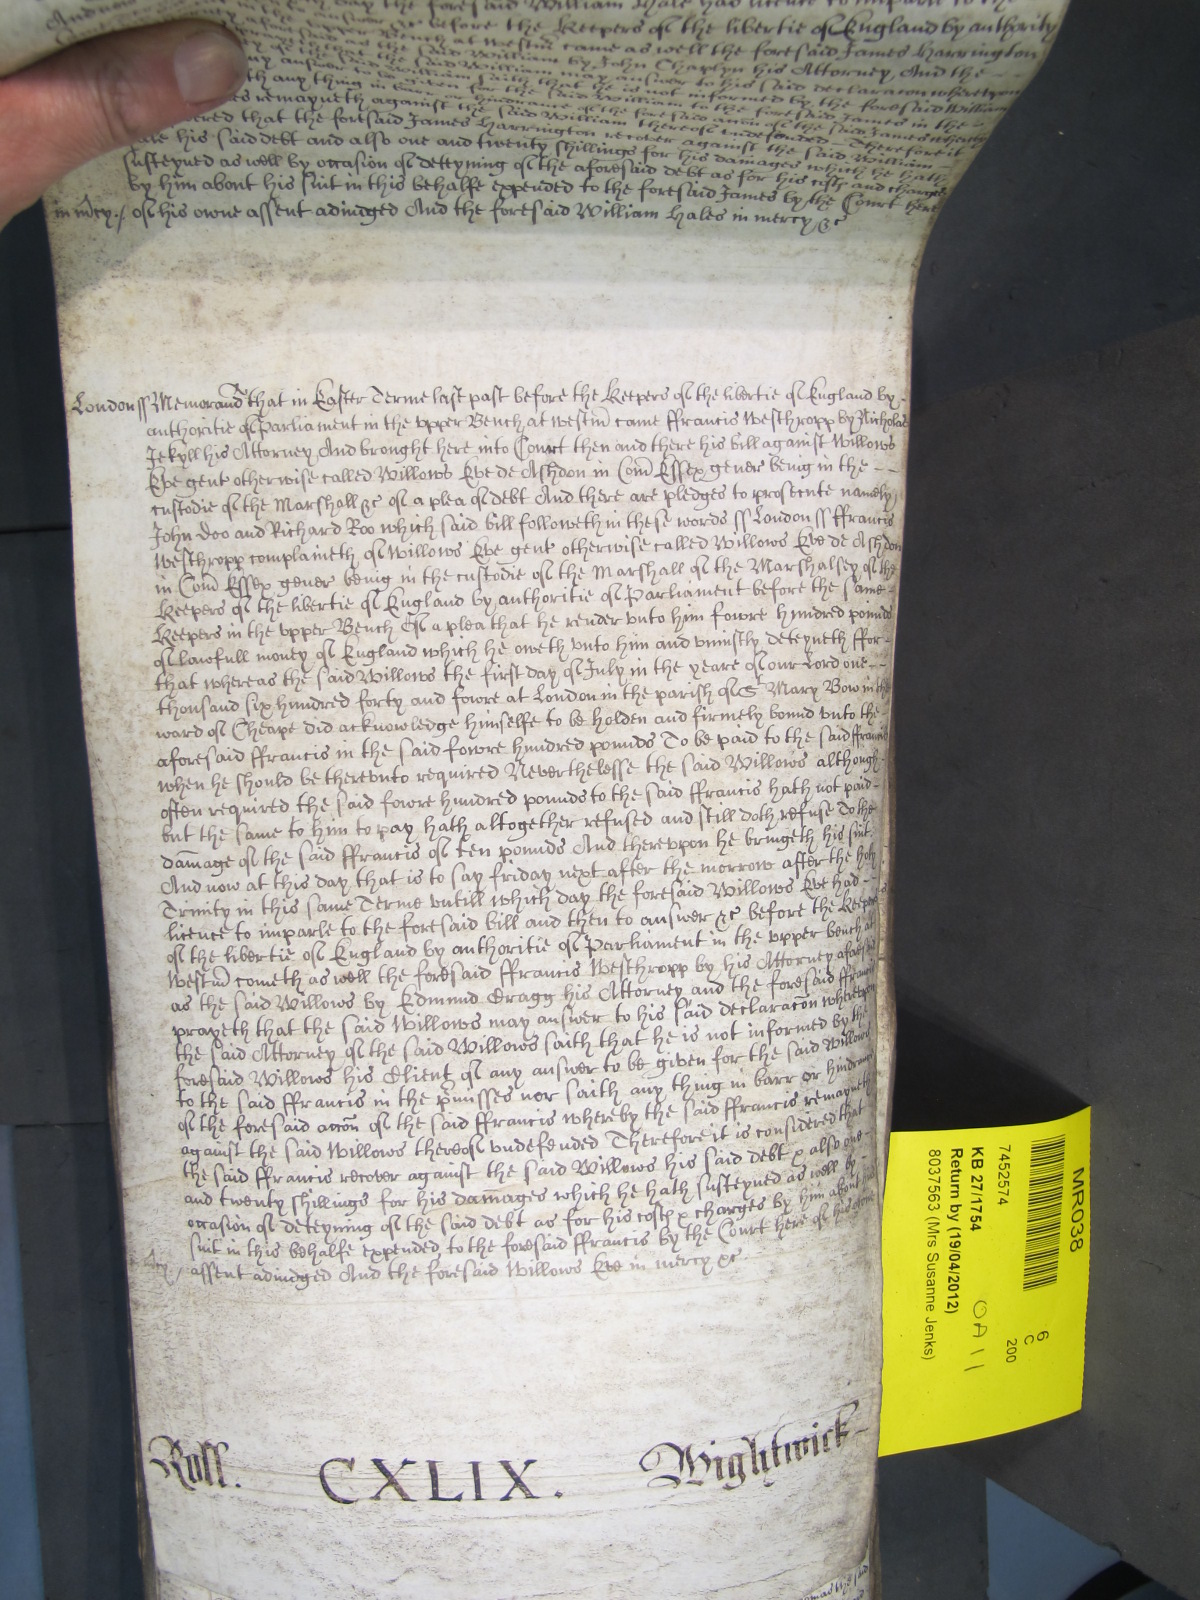 day the foresaid William Hale had licence to imparle to the
before the Keepers of the libertie of England by authority
Bench at Westm̄ came as well the foresaid James Harrington
the said William by John Chaplyn his Attorney, And the
may answer to his said declaracon whereupon
William saith that he is not informed by the foresaid William
any answer to be given for the said William to the foresaid James in the
th any thing in barr or hindrance of the foresaid accon of the said James whereby
es remayneth against the said William thereof undefended Therefore it
ered that the foresaid James Harrington recover against the said William
Hale his said debt and also one and twenty shillings for his damages which he hath
susteyned as well by occasion of deteyning of the aforesaid debt as for his costs and charges
by him about his suit in this behalfe expended to the foresaid James by the Court here
in m̄cy / of his owne assent adiudged And the foresaid William Hales in mercy &c
London ss Memorand that in Easter Terme last past before the Keepers of the libertie of England by
authoritie of Parliament in the vpper Bench at Westm̄ came ffrancis Westhropp by Nicholas
Jekyll his Attorney And brought here into Court then and there his bill against Willows
Eve gent otherwise called Willows Eve de Ashdon in Com̄ Essex gener being in the
custodie of the Marshall &c of a plea of debt And there are pledges to prosecute namely
John Doo and Richard Roo which said bill followeth in these words ss London ss ffrancis
Westhropp complaineth of Willows Eve gent otherwise called Willows Eve de Ashdon
in Com̄ Essex gener being in the custodie of the Marshall of the Marshalsey of the
Keepers of the libertie of England by authoritie of Parliament before the same
Keepers in the vpper Bench Of a plea that he render vnto him fowre hundred pounds
of lawfull money of England which he oweth vnto him and vniustly deteyneth ffor
that whereas the said Willows the first day of July in the yeare of our Lord one
thousand six hundred forty and fowre at London in the parish of St Mary Bow in the
ward of Cheape did acknowledge himselfe to be holden and firmely bound vnto the
aforesaid ffrancis in the said fowre hundred pounds To be paid to the said ffrancis
when he should be therevnto required Neverthelesse the said Willows although
often required the said fowre hundred pounds to the said ffrancis hath not paid
but the same to him to pay hath altogether refused and still doth refuse To the
dam̄age of the said ffrancis of ten pounds And therevpon he bringeth his suit
And now at this day that is to say friday next after the morrow after the holy
Trinity in this same Terme vntill which day the foresaid Willows Eve had
licence to imparle to the foresaid bill and then to answer &c before the Keepers
of the libertie of England by authoritie of Parliament in the vpper bench at
Westm̄ cometh as well the foresaid ffrancis Westhropp by his Attorney aforesaid
as the said Willows by Edmund Cragg his Attorney and the foresaid ffrancis
prayeth that the said Willows may answer to his said declaracon wherevpon
the said Attorney of the said Willows saith that he is not informed by the
foresaid Willows his Client of any answer to be given for the said Willows
to the said ffrancis in the p̄misses nor saith any thing in barr or hindrance
of the foresaid accon̄ of the said ffrancis whereby the said ffrancis remayneth
against the said Willows thereof vndefended Therefore it is considered that
the said ffrancis recover against the said Willows his said debt & also one
and twenty shillings for his damages which he hath susteyned as well by
occasion of deteyning of the said debt as for his costs & charges by him about his
suit in this behalfe expended to the foresaid ffrancis by the Court here of his owne
assent adiudged And the foresaid Willows Eve in mercy &c
Roll. CXLIX. Wightwick
MR038
7452574
KB 27/1754
Return by (19/04/2012)
8037563 (Mrs Susanne Jenks)
6
C
200
OA 11